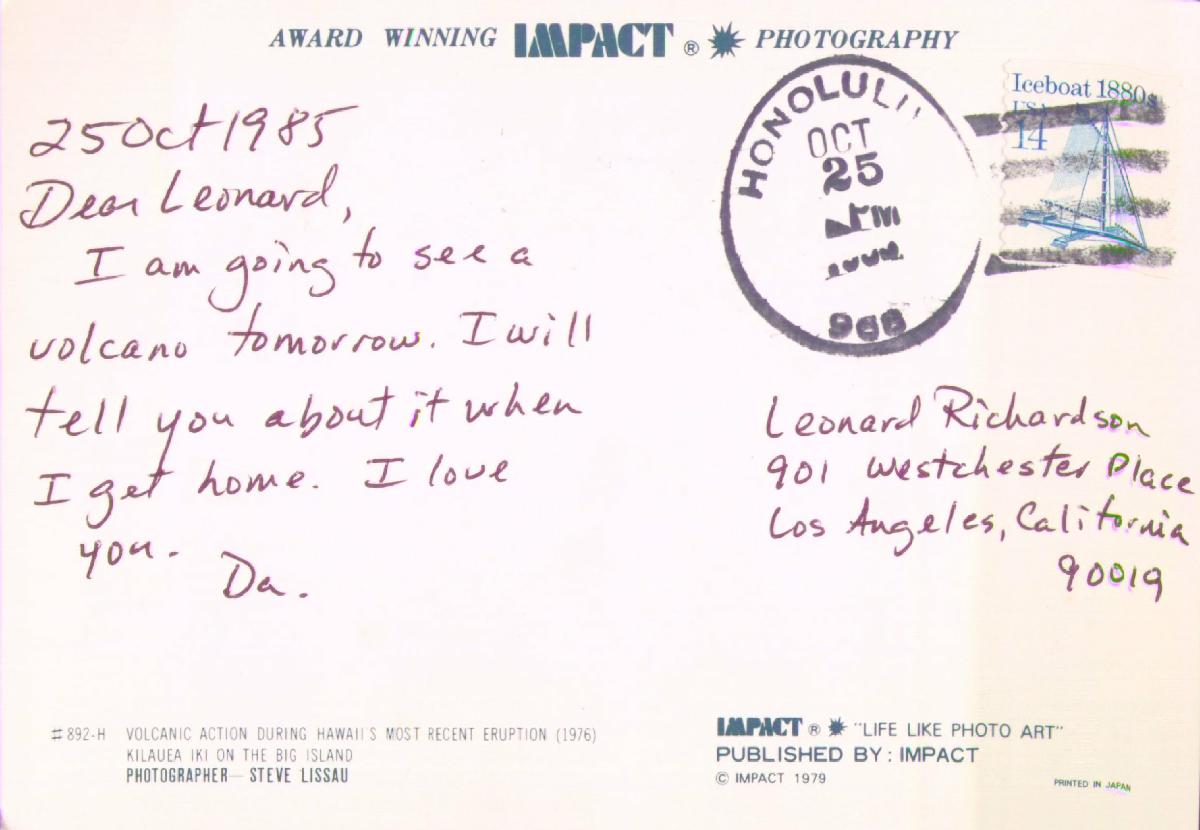 AWARD WINNING IMPACT ® PHOTOGRAPHY
25 Oct 1985
Dear Leonard,
I am going to see a
volcano tomorrow. I will
tell you about it when
I get home. I love
you.
Da.
HONOLULU
OCT
25
PM
968
Iceboat 1880s
USA
14
Leonard Richardson
901 Westchester Place
Los Angeles, California
90019
#892-H VOLCANIC ACTION DURING HAWAII'S MOST RECENT ERUPTION (1976)
KILAUEA IKI ON THE BIG ISLAND
PHOTOGRAPHER— STEVE LISSAU
IMPACT ® "LIFE LIKE PHOTO ART"
PUBLISHED BY: IMPACT
© IMPACT 1979
PRINTED IN JAPAN